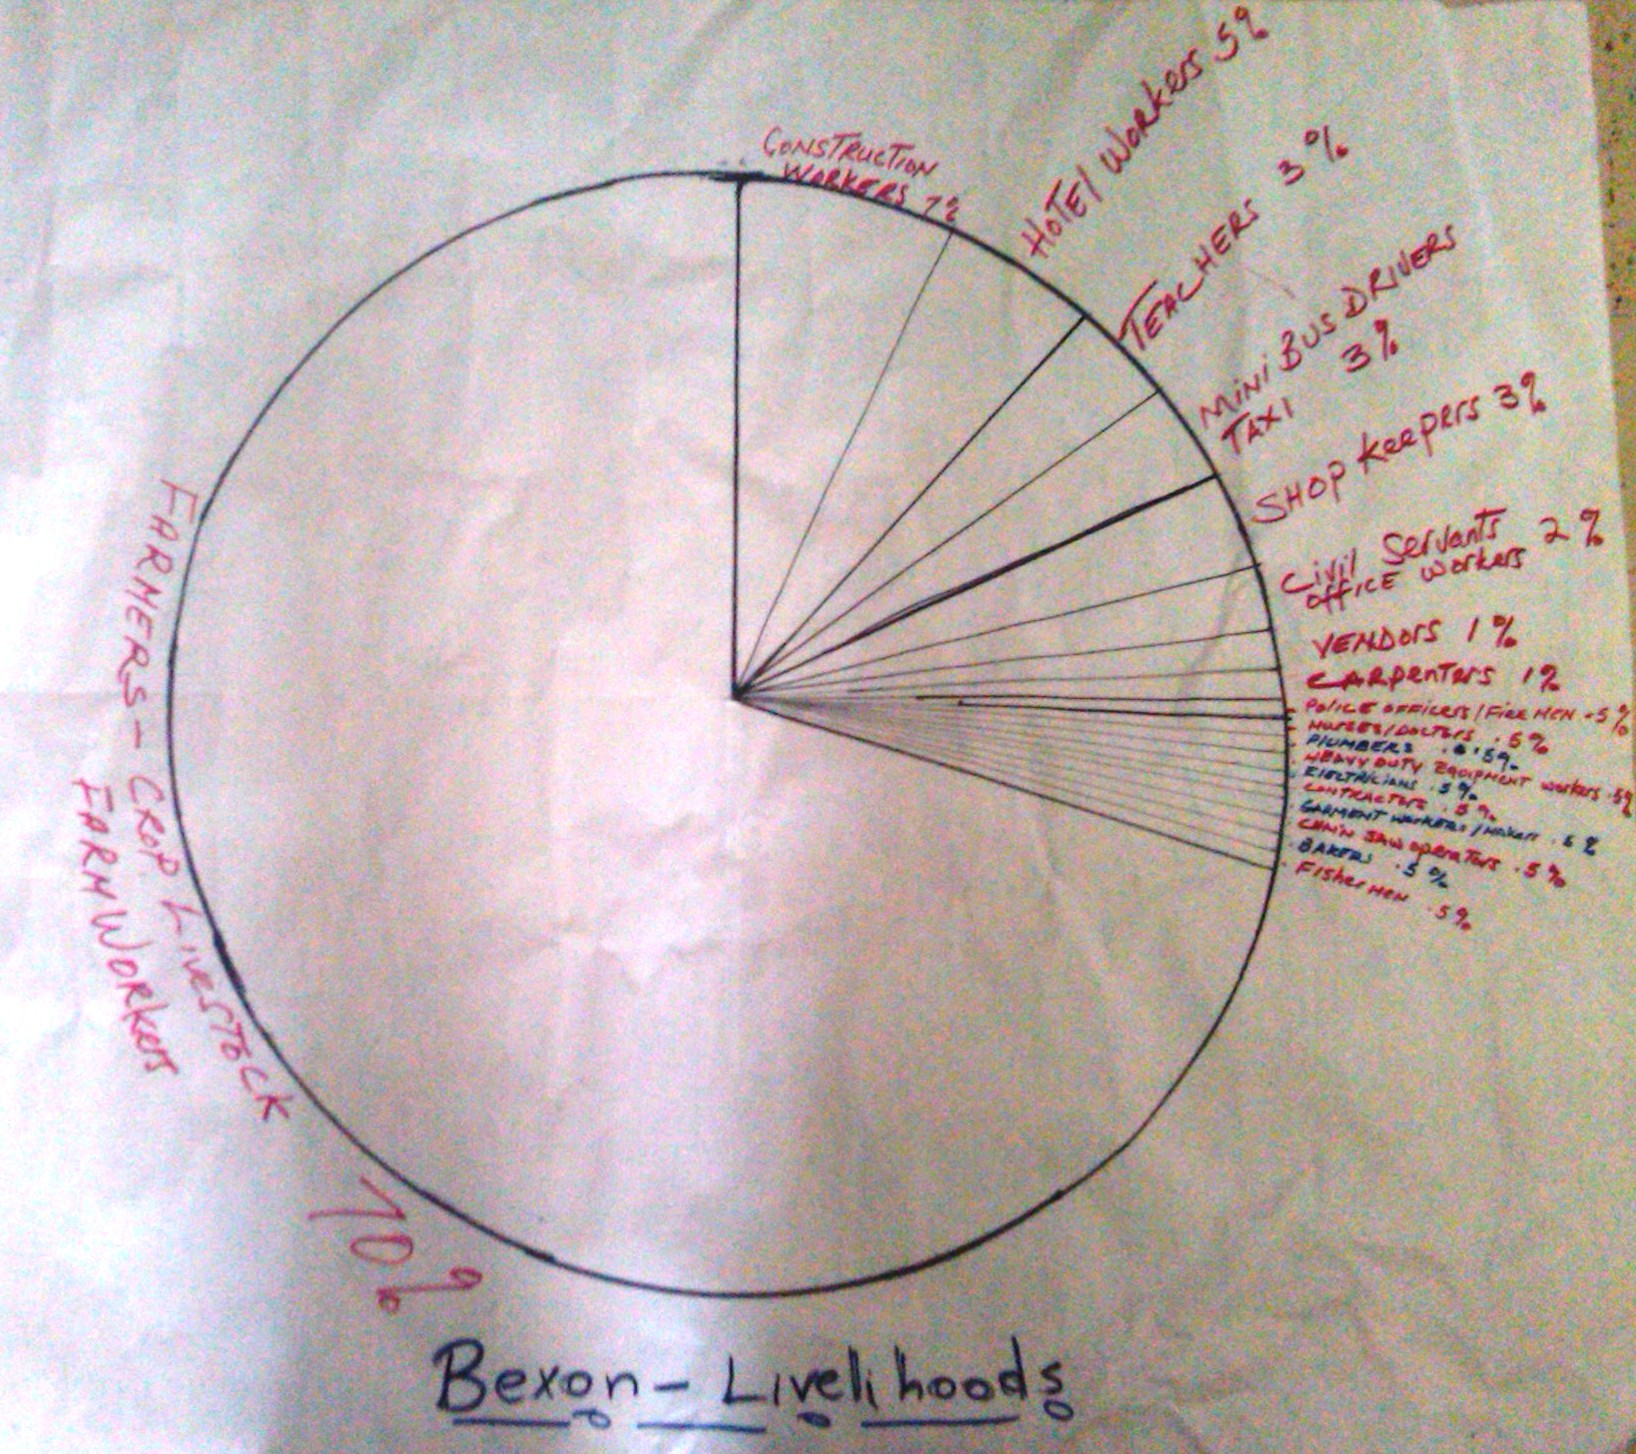 CONSTRUCTION
WORKERS 7%
HOTEL WORKERS 5%
TEACHERS 3%
MINI BUS DRIVERS
TAXI 3%
SHOP Keepers 3%
Civil Servants 2%
OFFICE WORKERS
VENDORS 1%
CARPENTERS 1%
POLICE OFFICERS/FIRE MEN .5%
NURSES/DOCTORS .5%
PLUMBERS 0.5%
HEAVY DUTY EQUIPMENT WORKERS .5%
ELECTRICIANS .5%
CONTRACTORS .5%
GARMENT WORKERS/MAKERS .5%
CHAIN SAW OPERATORS .5%
BAKERS .5%
FISHERMEN .5%
FARMERS - CROP LIVESTOCK
FARM WORKERS
70%
Bexon - Livelihoods